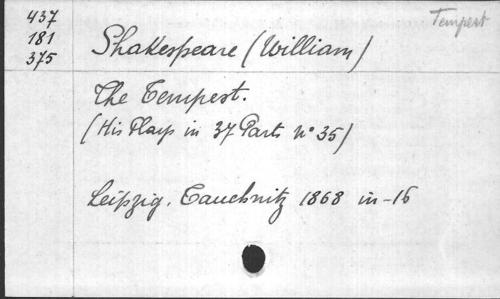 437
181
375
Tempest
Shakespeare (William)
The Tempest.
(His Plays in 37 Parts n° 35)
Leipzig. Tauchnitz 1868 in-16